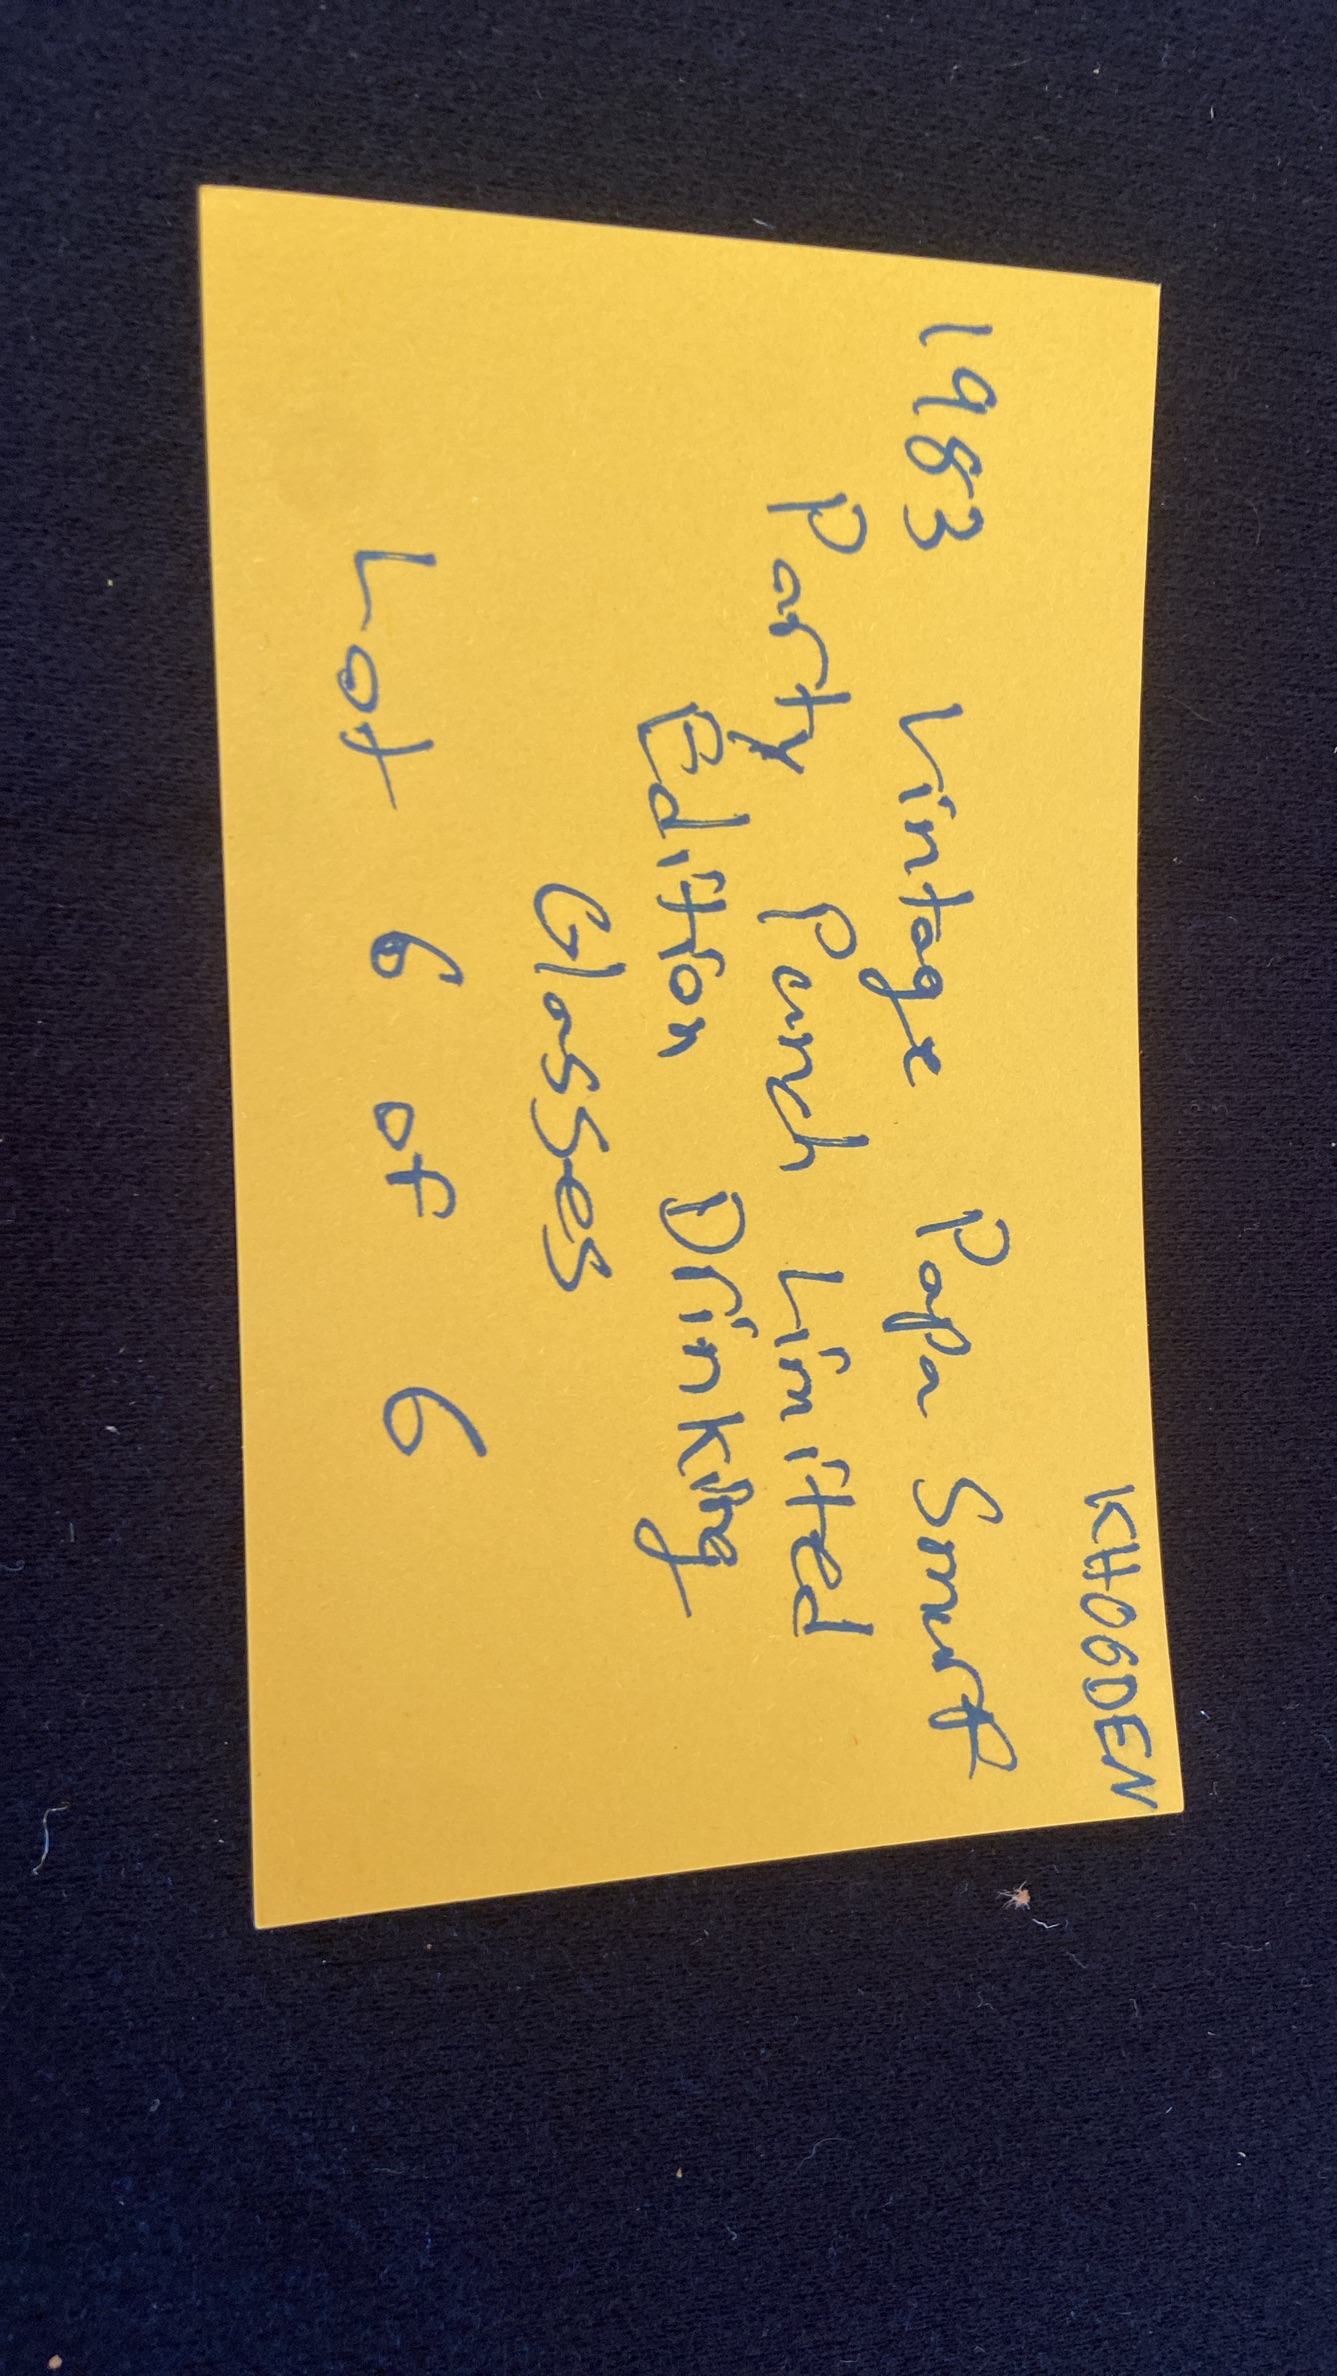 KHOGDEN
1983 Vintage Papa Smurf
Party Punch Limited
Edition Drinking
Glasses
Lot 6 of 6